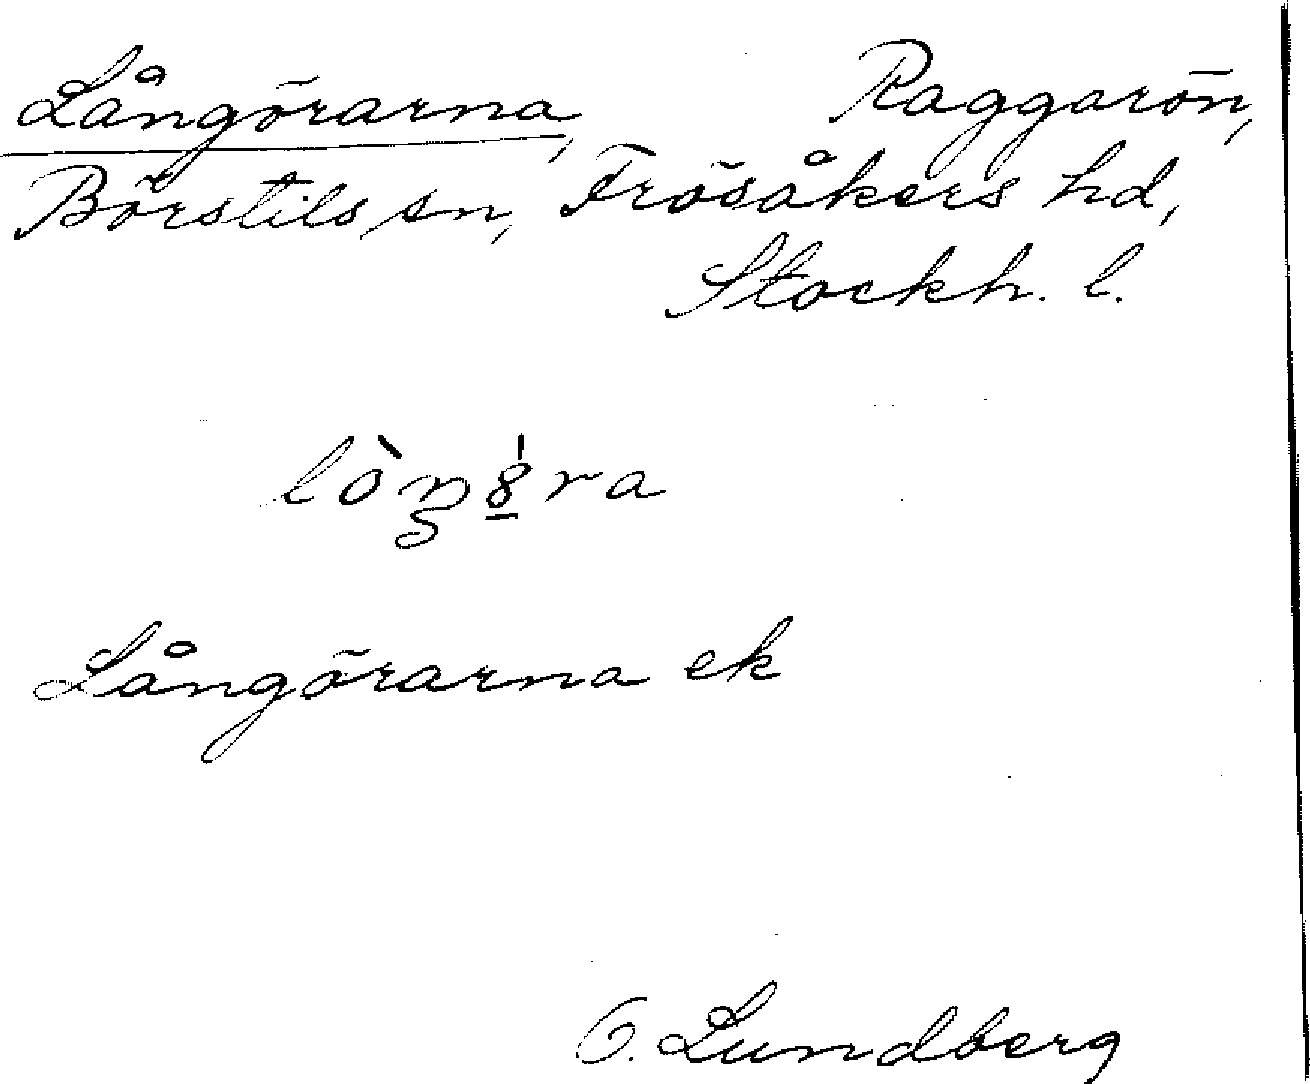 Långörarna, Raggarön,
Börstils sn, Frösåkers hd,
Stockh. l.
Långörarna ek
O. Lundberg